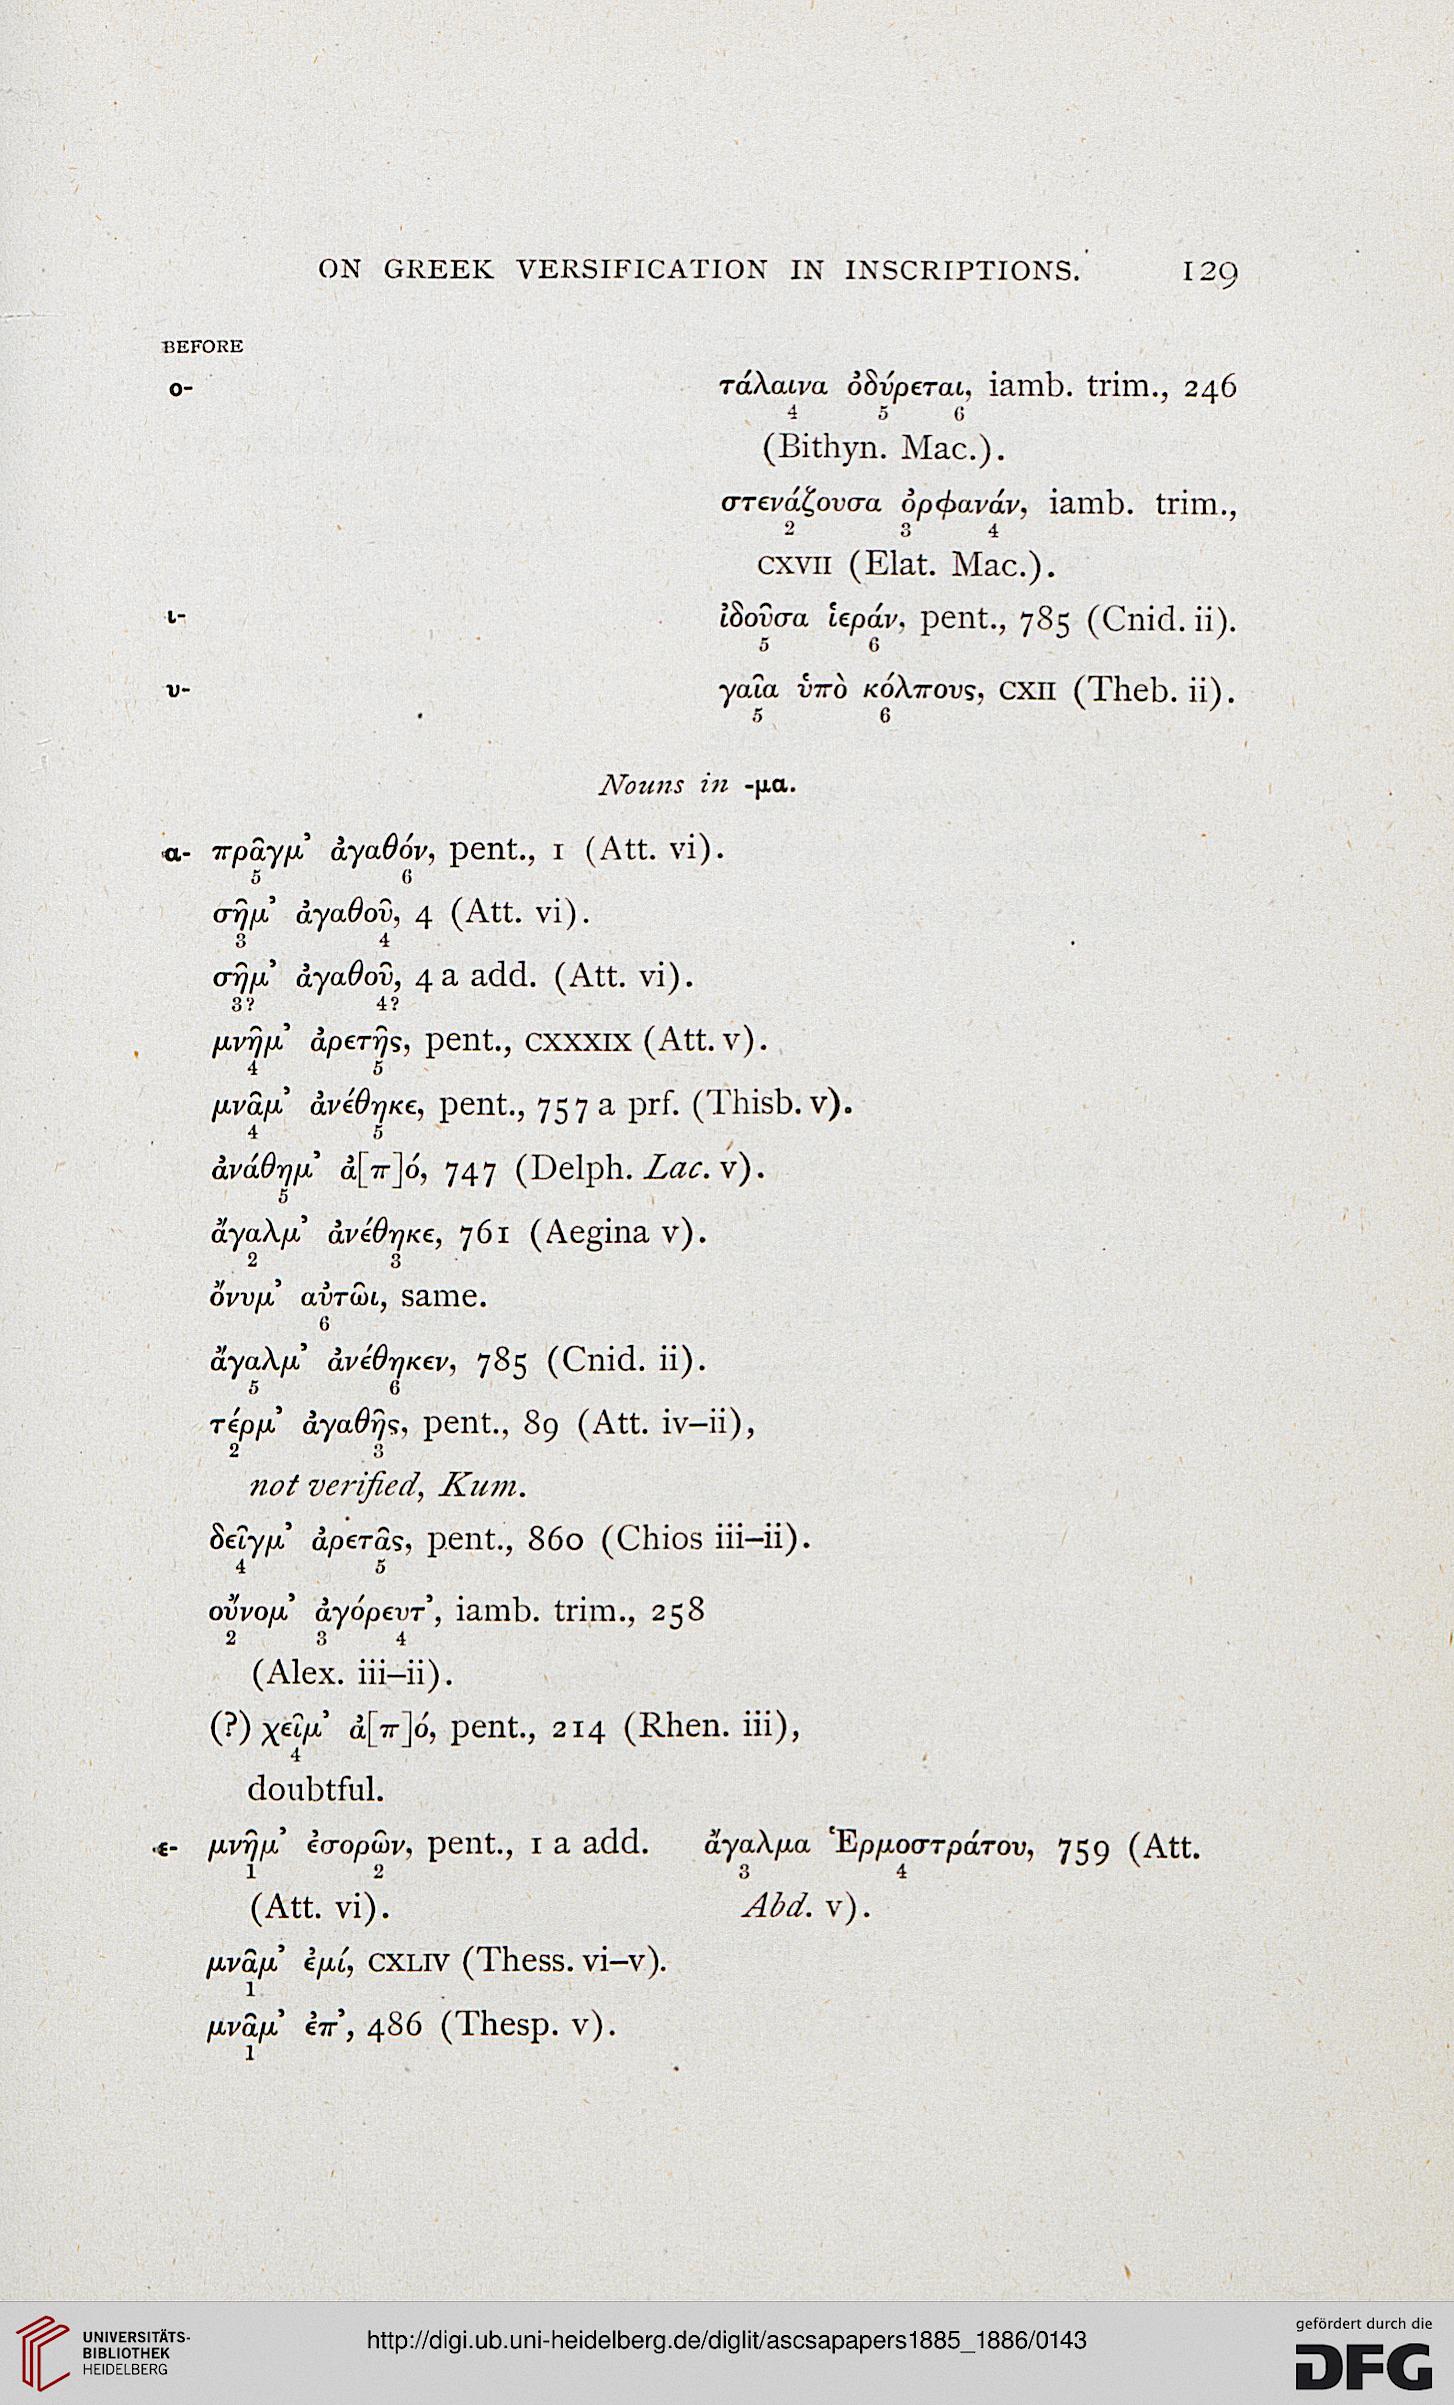 ON GREEK VERSIFICATION IN INSCRIPTIONS. 129
BEFORE
ο- τάλαινα ὀδύρεται, iamb. trim., 246
4 5 6
(Bithyn. Mac.).
στενάζουσα ὀρφανάν, iamb. trim.,
2 3 4
CXVII (Elat. Mac.).
ι- ἰδοῦσα ἱεράν, pent., 785 (Cnid. ii).
5 6
υ- γαῖα ὑπὸ κόλπους, CXII (Theb. ii).
5 6
Nouns in -μα.
α- πρᾶγμ’ ἀγαθόν, pent., 1 (Att. vi).
5 6
σῆμ’ ἀγαθοῦ, 4 (Att. vi).
3 4
σῆμ’ ἀγαθοῦ, 4 a add. (Att. vi).
3? 4?
μνῆμ’ ἀρετῆς, pent., CXXXIX (Att. v).
4 5
μνᾶμ’ ἀνέθηκε, pent., 757 a prf. (Thisb. v).
4 5
ἀνάθημ’ ἀ[π]ό, 747 (Delph. Lac. v).
5
ἄγαλμ’ ἀνέθηκε, 761 (Aegina v).
2 3
ὄνυμ’ αὐτῶι, same.
6
ἄγαλμ’ ἀνέθηκεν, 785 (Cnid. ii).
5 6
τέρμ’ ἀγαθῆς, pent., 89 (Att. iv–ii),
2 3
not verified, Kum.
δεῖγμ’ ἀρετᾶς, pent., 860 (Chios iii–ii).
4 5
οὔνομ’ ἀγόρευτ’, iamb. trim., 258
2 3 4
(Alex. iii–ii).
(?) χεῖμ’ ἀ[π]ό, pent., 214 (Rhen. iii),
4
doubtful.
ε- μνῆμ’ ἐσορῶν, pent., 1 a add. ἄγαλμα Ἑρμοστράτου, 759 (Att.
1 2 3 4
(Att. vi). Abd. v).
μνᾶμ’ ἐμί, CXLIV (Thess. vi–v).
1
μνᾶμ’ ἐπ’, 486 (Thesp. v).
1
UNIVERSITÄTS-
BIBLIOTHEK
HEIDELBERG
http://digi.ub.uni-heidelberg.de/diglit/ascsapapers1885_1886/0143
gefördert durch die
DFG